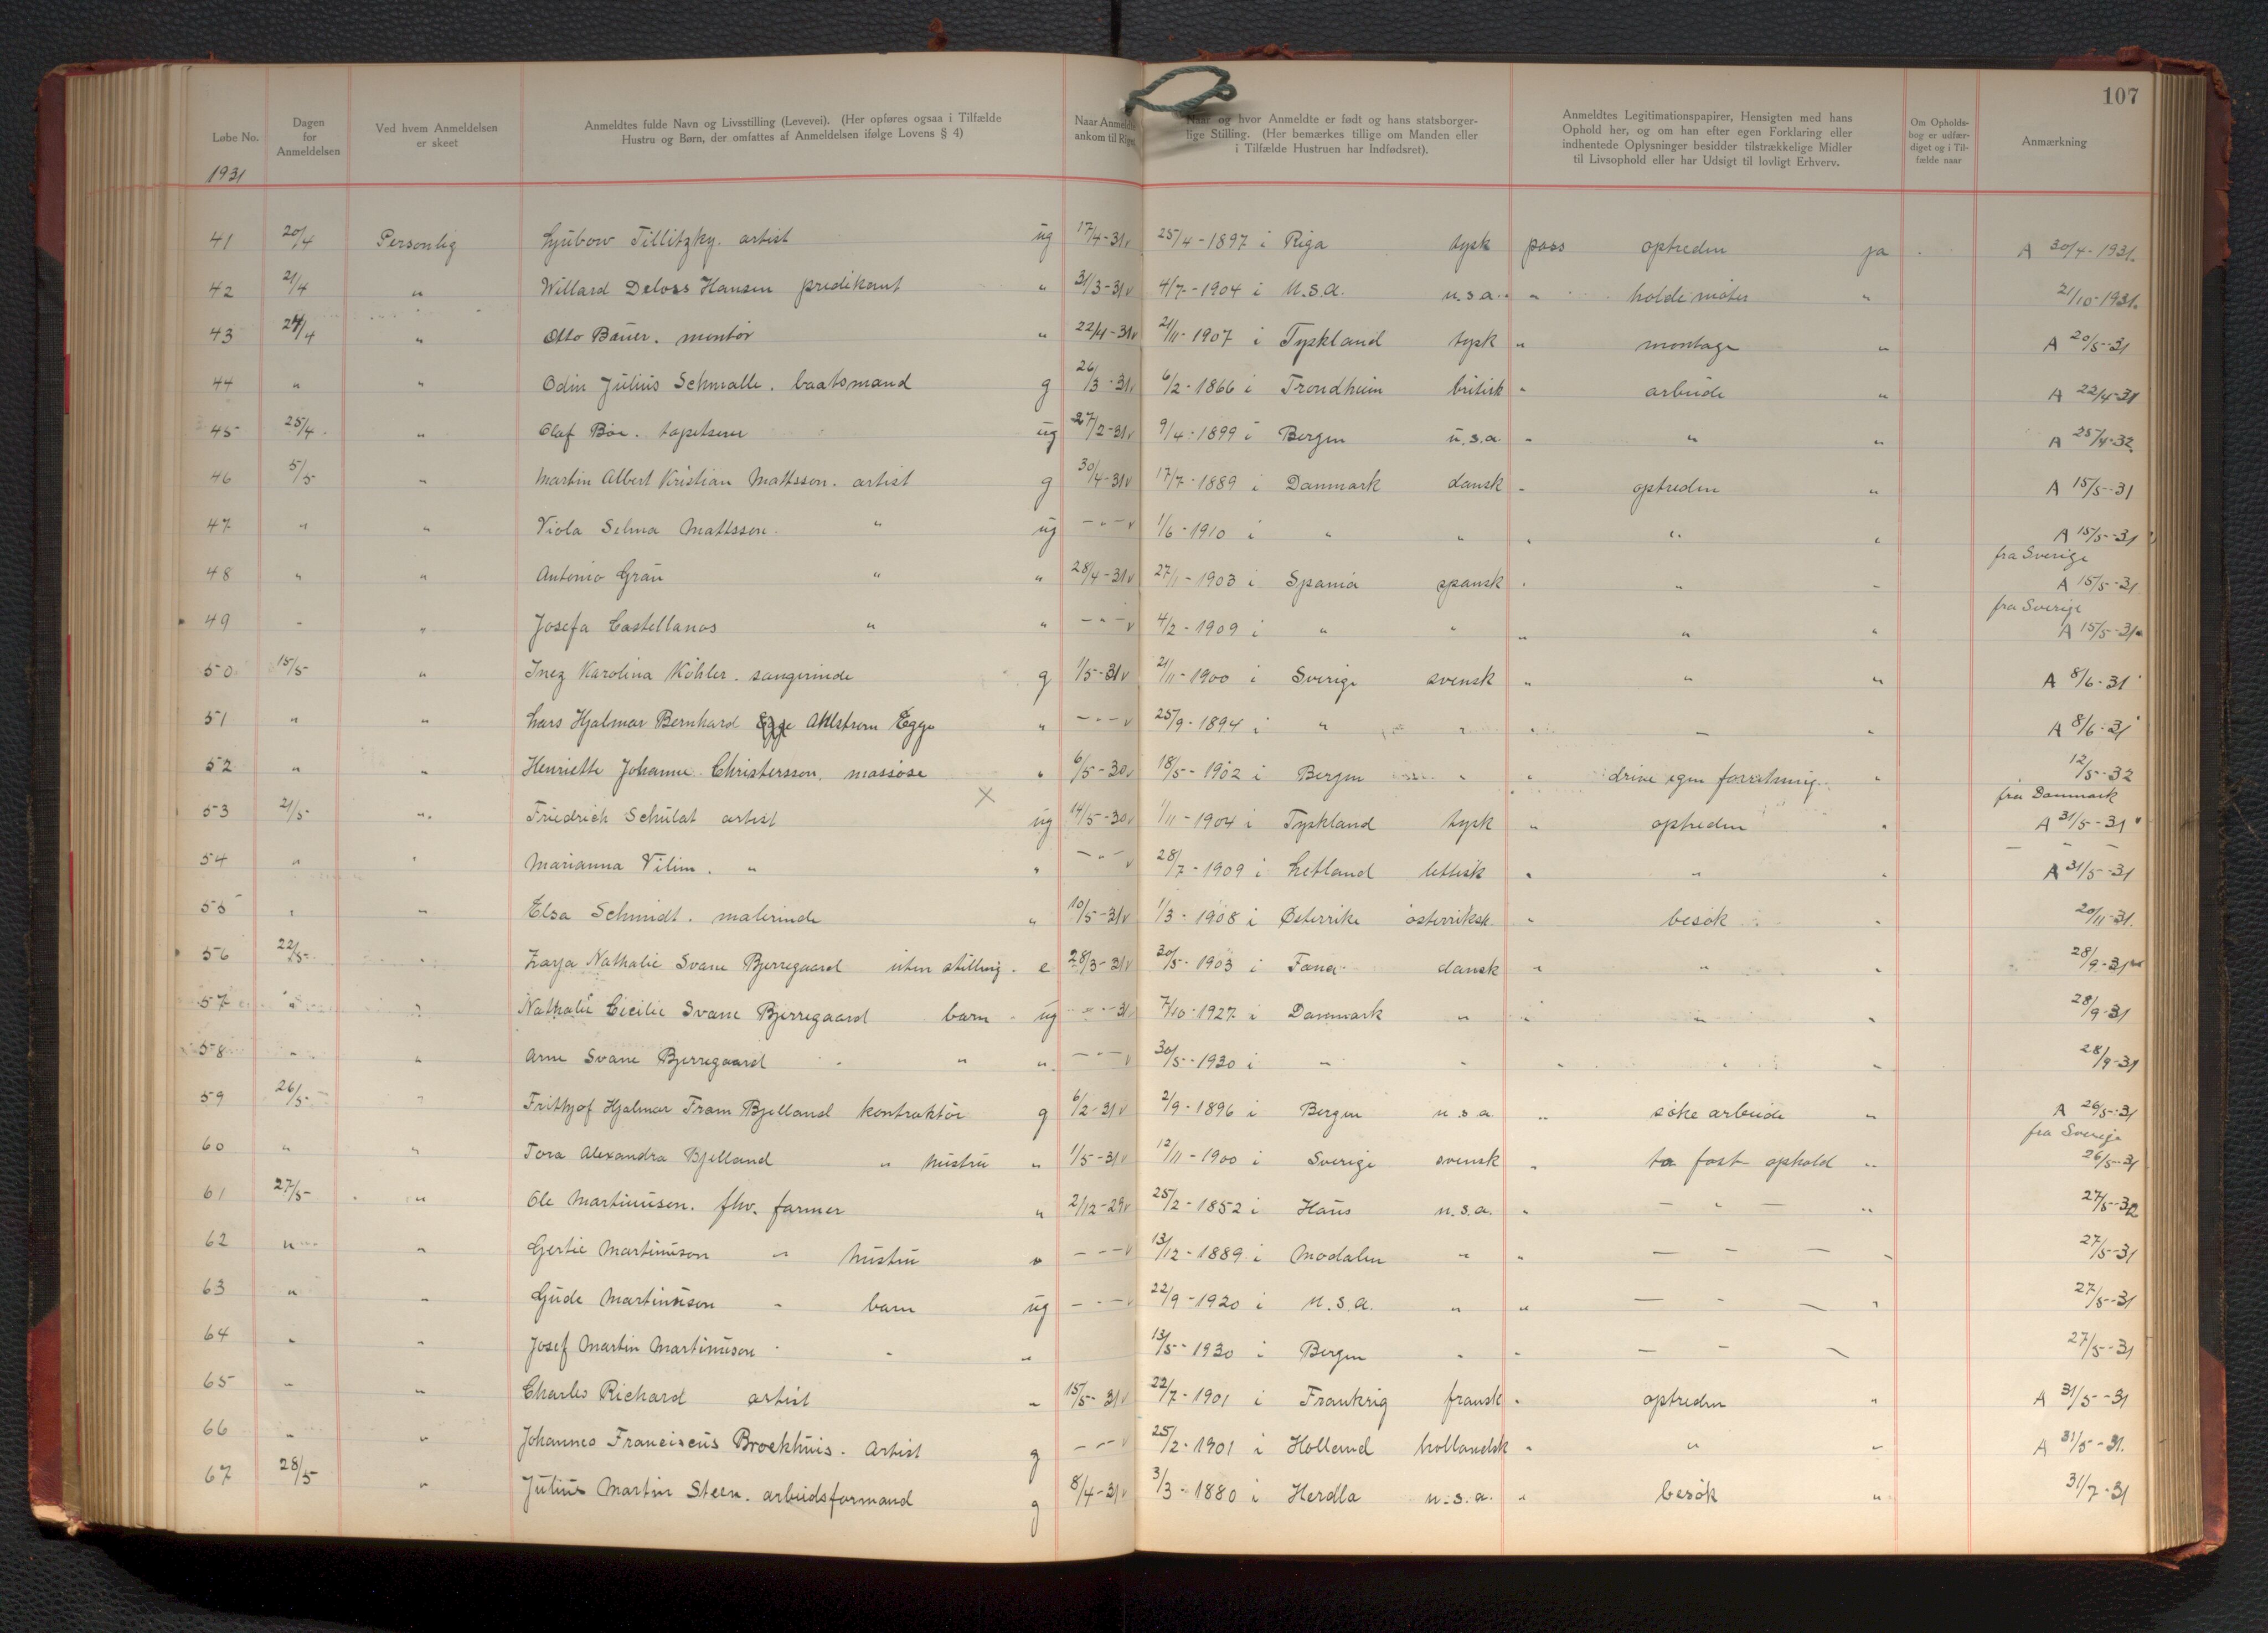 107
Løbe No. Dagen for Anmeldelsen Ved hvem Anmeldelsen er skeet Anmeldtes fulde Navn og Livsstilling (Levevei). (Her opføres ogsaa i Tilfælde Hustru og Børn, der omfattes af Anmeldelsen ifølge Lovens § 4) Naar Anmeldte ankom til Riget Naar og hvor Anmeldte er født og hans statsborgerlige Stilling. (Her bemærkes tillige om Manden eller i Tilfælde Hustruen har Indfødsret). Anmeldtes Legitimationspapirer, Hensigten med hans Ophold her, og om han efter egen Forklaring eller indhentede Oplysninger besidder tilstrækkelige Midler til Livsophold eller har Udsigt til lovligt Erhverv. Om Opholdsbog er udfærdiget og i Tilfælde naar Anmærkning
1931
41 20/4 Personlig Ljubow Tillitzky. artist ug 17/4-31 v 25/4-1897 i Riga tysk pass optreden ja A 30/4-1931.
42 21/4 " Willard Deloss Hansen predikant " 31/3-31 v 4/7-1904 i U.S.a. u.s.a. " holde møter " 21/10-1931.
43 24/4 " Otto Bauer. montør " 22/4-31 v 21/11-1907 i Tyskland tysk " montage " A 20/5-31
44 " " Odin Julius Schmalle. baatsmand g 26/3-31 v 6/2-1866 i Trondheim britisk " arbeide " A 22/4-31
45 25/4. " Olaf Bøe. tapetserer ug 27/2-31 v 9/4-1899 i Bergen u.s.a. " " " A 25/4-32
46 5/5 " Martin Albert Kristian Mattsson. artist g 30/4-31 v 17/7-1889 i Danmark dansk " optreden " A 15/5-31
47 " " Viola Selma Mattsson. " ug - " - v 1/6-1910 i " " " " " A 15/5-31
fra Sverige
48 " " Antonio Grau " " 28/4-31 v 27/11-1903 i Spania spansk " " " A 15/5-31
fra Sverige
49 " " Josefa Castellanos " " - " - v 4/2-1909 i " " " " " A 15/5-31
50 15/5 " Inez Karolina Köhler. sangerinde g 1/5-31 v 21/11-1900 i Sverige svensk " " " A 8/6-31
51 " " Lars Hjalmar Bernhard Ahlstrøm Egge " - " - v 25/9-1894 i " " " " " A 8/6-31
52 " " Henriette Johanne Christersson. massøse " 6/5-30 v 18/5-1902 i Bergen " " drive egen forretning " 12/5-32
fra Danmark
53 21/5 " Friedrich Schulat artist × ug 14/5-30 v 1/11-1904 i Tyskland tysk " optreden " A 31/5-31
54 " " Marianna Vilim. " " - " - v 28/7-1909 i Letland lettisk " " " A 31/5-31
55 " " Elsa Schmidt. malerinde " 10/5-31 v 1/3-1908 i Østerrike østerriksk " besøk " 20/11-31.
56 22/5 " Zarja Nathalie Svane Bjerregaard uten stilling. e 28/3-31 v 20/5-1903 i Fana dansk " " " 28/9-31
57 " " Nathalie Cicilie Svane Bjerregaard barn ug - " -31 7/10-1927 i Danmark " " " " 28/9-31
58 " " Arne Svane Bjerregaard " " - " - v 30/5-1930 i " " " " " 28/9-31
59 26/5 " Frithjof Hjalmar Fram Bjelland kontraktör g 6/2-31 v 2/9-1896 i Bergen u.s.a " søke arbeide " A 26/5-31
fra Sverige
60 " " Tora Alexandra Bjelland " hustru " 1/5-31 v 12/11-1900 i Sverige svensk " ta fast ophold " 26/5-31
61 27/5 " Ole Martinusen. fhv. farmer " 2/12-29 v 25/2-1852 i Haus u.s.a. " - " - " 27/5-32
62 " " Gertie Martinuson " hustru " - " - v 13/12-1889 i Modalen " " - " - " 27/5-31
63 " " Gude Martinuson " barn ug - " - v 22/9-1920 i U.S.a. " " - " - " 27/5-31
64 " " Josef Martin Martinuson " " " 13/5-1930 i Bergen " " - " - 27/5-31
65 " " Charles Richard artist " 15/5-31 v 22/7-1901 i Frankrig fransk " optreden " A 31/5-31
66 " " Johannes Franciscus Broekhuis. Artist g - " - v 25/2-1901 i Holland hollandsk " " " A 31/5-31.
67 28/5 " Julius Martin Steen. arbeidsformand g 8/4-31 v 3/3-1880 i Herdla u.s.a. " besøk " 31/7-31